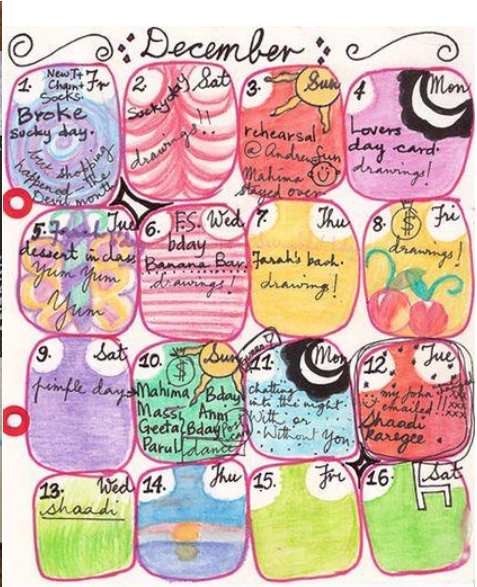 December
1. Fri
New T+
Chain+
Socks.
Broke
sucky day.
but shopping
happened - the
Devil month
2. Sat
Sucky day
drawings!!
3. Sun
rehearsal
@ Andre
Sun
Mahima
stayed over
4 Mon
Lovers
day card.
drawings!
5. Tue
dessert in class
Yum Yum
Yum
6. Wed
F.S.
bday
Banana Bar.
drawings!
7 Thu
Farah's bash.
drawings!
8. Fri
$
drawings!
9. Sat
pimple day
10. Sun
$
Mahima Bday
Massi Anni
Geeta Bday
Parul dance
11. Mon
chatting
into the night.
With or
Without You.
12 Tue
my John
emailed !!
Shaadi
Karogee
xxx
xxx
13. Wed
shaadi
14. Thu
15. Fri
16. Sat